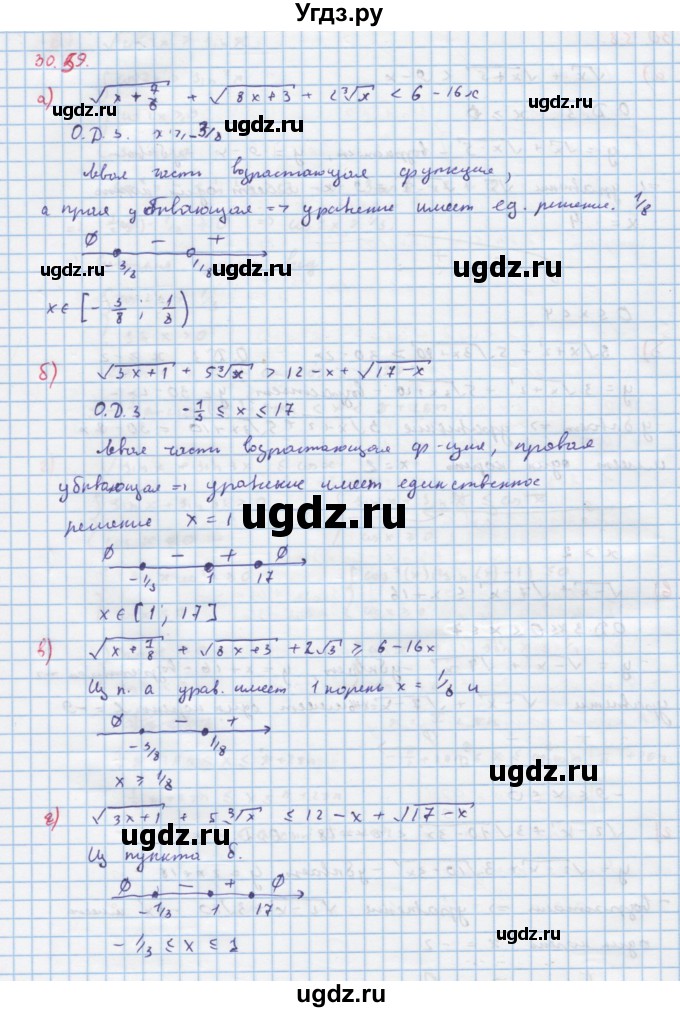 Угдз.ру
30.59.
а) √(x + 7/8) + √(8x+3) + 2∛x < 6 - 16x
О.Д.З. x ⩾ -3/8
Левая часть возрастающая функция,
а прая убывающая => уравнение имеет ед. решение. 1/8
∅ - +
-3/8 1/8
x ∈ [-3/8 ; 1/8)
б) √(3x+1) + 5∛x > 12 - x + √(17-x)
О.Д.З -1/3 ≤ x ≤ 17
Левая часть возрастающая ф-ция, правая
убывающая => уравение имеет единственное
решение x = 1
∅ - + ∅
-1/3 1 17
x ∈ (1 ; 17]
в) √(x + 7/8) + √(8x+3) + 2√3 ⩾ 6 - 16x
Из п. а урав. имеет 1 корень x = 1/8 и
∅ - +
-3/8 1/8
x ⩾ 1/8
г) √(3x+1) + 5∛x ≤ 12 - x + √(17-x)
Из пункта б.
∅ - + ∅
-1/3 1 17
-1/3 ≤ x ≤ 1
ugdz.ru